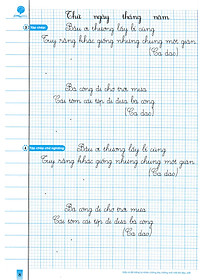 Thứ ngày tháng năm
Bầu ơi thương lấy bí cùng
Tuy rằng khác giống nhưng chung một giàn
(Ca dao)
Bà còng đi chợ trời mưa
Cái tôm cái tép đi đưa bà còng
(Ca dao)
Bầu ơi thương lấy bí cùng
Tuy rằng khác giống nhưng chung một giàn
(Ca dao)
Bà còng đi chợ trời mưa
Cái tôm cái tép đi đưa bà còng
(Ca dao)